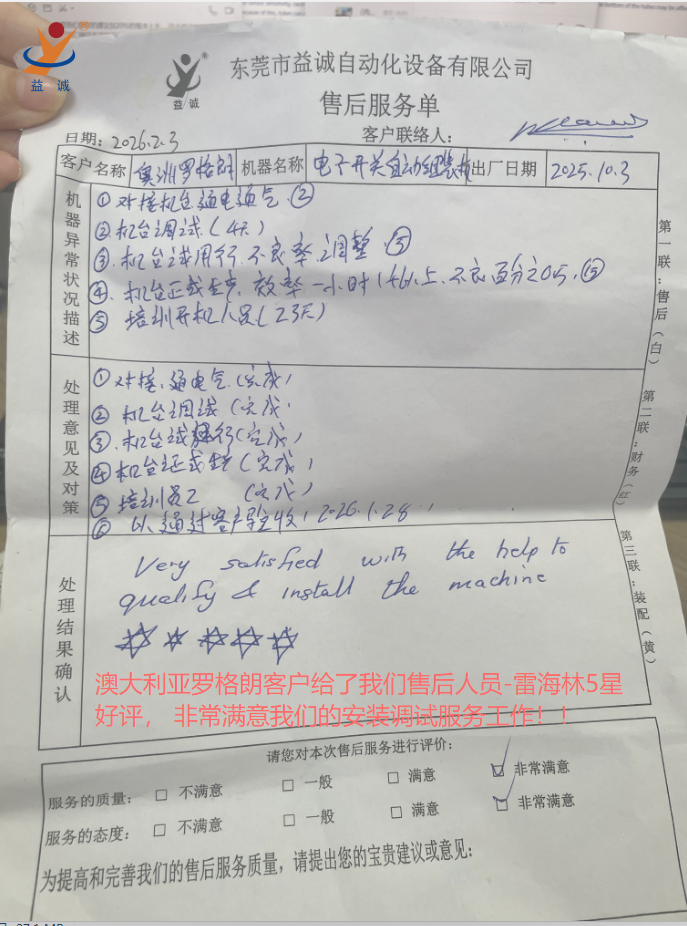 益诚
益诚
东莞市益诚自动化设备有限公司
售后服务单
日期：2026.2.3
客户联络人：
客户名称 奥洲罗格朗 机器名称 电子开关自动组装机 出厂日期 2025.10.3
机器异常状况描述
① 对接机台通电通气.②
② 机台调试.(4天)
③. 机台试用行.不良率.调整.⑤
④、机台正式生产.效率一小时 上.不良百分之
⑤ 培训开机人员(2.3天)
处理意见及对策
① 对接、通电气.(完成)
② 机台调试 (完成.
③.机台试运行(完成)
④机台正式生产(完成)
⑤ 培训员工 (完成)
⑥ 以通过客户验收,2026.1.28,
处理结果确认
Very satisfied with the help to
qualify & install the machine
☆☆☆☆☆
澳大利亚罗格朗客户给了我们售后人员-雷海林5星
好评， 非常满意我们的安装调试服务工作！！
第一联：售后（白）
第二联：财务（红）
第三联：装配（黄）
请您对本次售后服务进行评价：
服务的质量： □ 不满意 □ 一般 □ 满意 ☑ 非常满意
服务的态度： □ 不满意 □ 一般 □ 满意 ☑ 非常满意
为提高和完善我们的售后服务质量，请提出您的宝贵建议或意见：